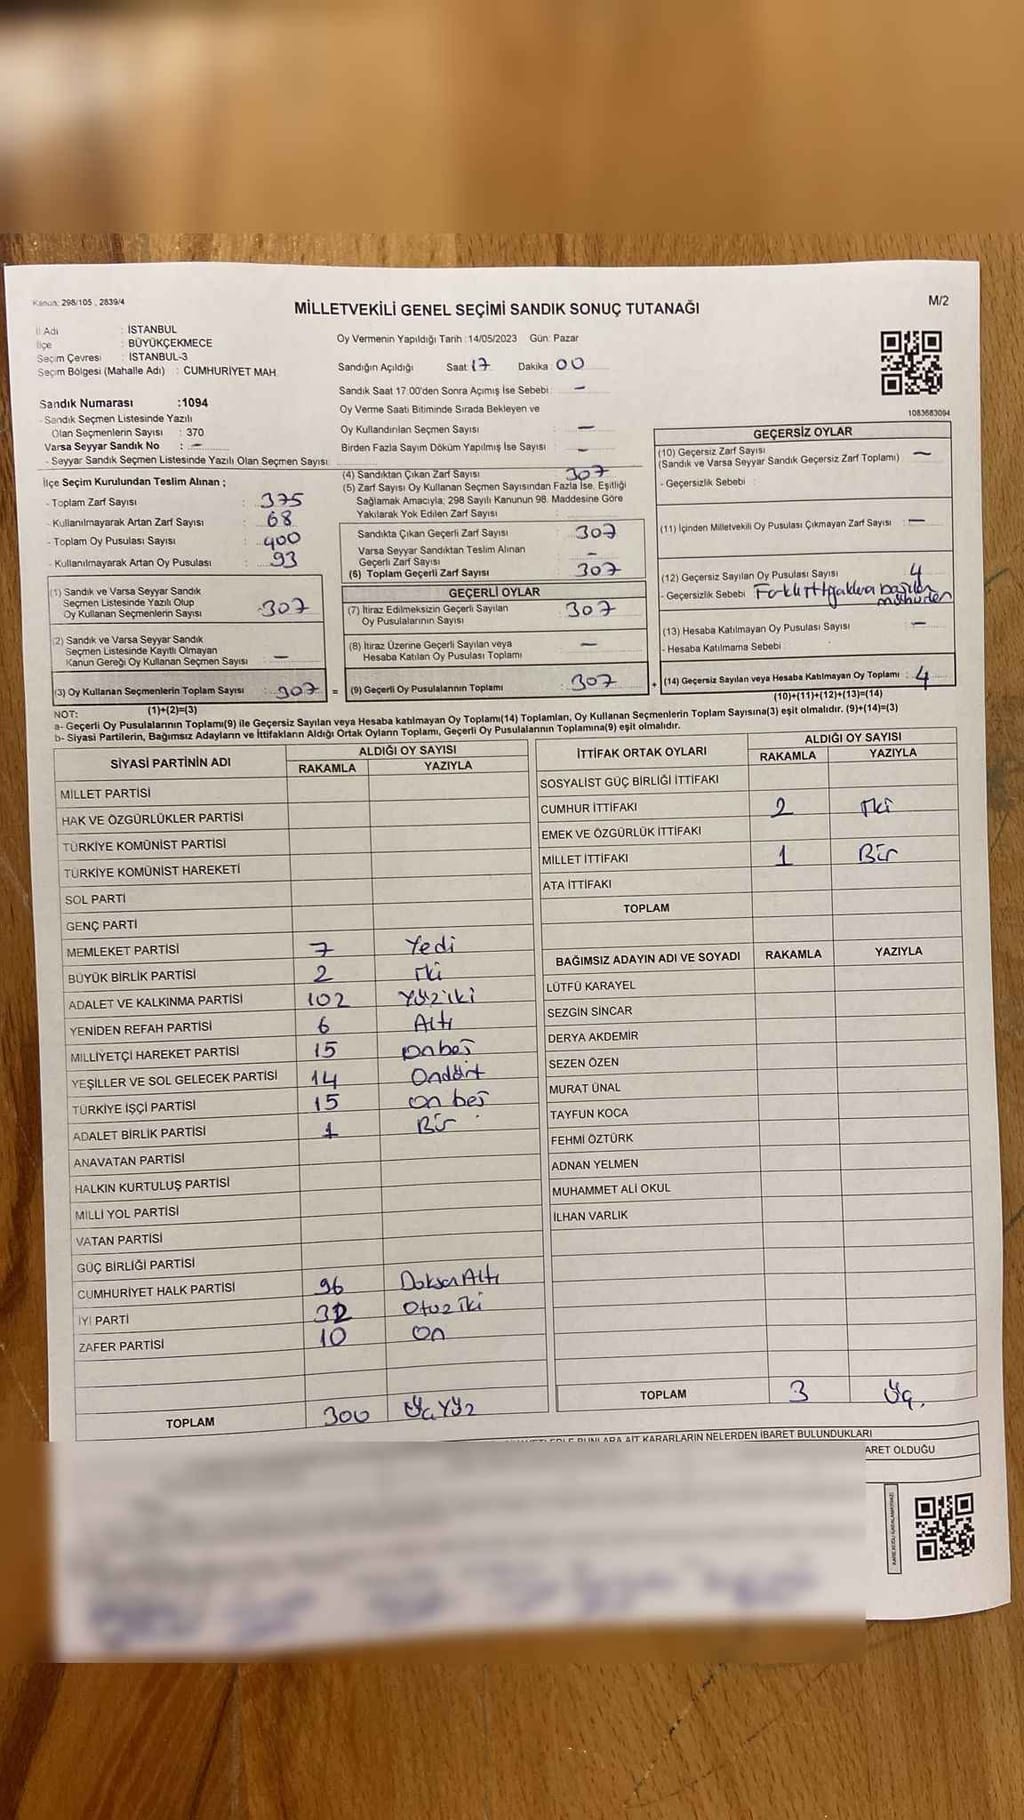 Kanun: 298/105 , 2839/4
MİLLETVEKİLİ GENEL SEÇİMİ SANDIK SONUÇ TUTANAĞI
M/2
İl Adı : İSTANBUL
İlçe : BÜYÜKÇEKMECE
Seçim Çevresi : İSTANBUL-3
Seçim Bölgesi (Mahalle Adı) : CUMHURİYET MAH.
Sandık Numarası :1094
- Sandık Seçmen Listesinde Yazılı
Olan Seçmenlerin Sayısı : 370
Varsa Seyyar Sandık No : —
- Seyyar Sandık Seçmen Listesinde Yazılı Olan Seçmen Sayısı:
İlçe Seçim Kurulundan Teslim Alınan ;
- Toplam Zarf Sayısı : 375
- Kullanılmayarak Artan Zarf Sayısı : 68
- Toplam Oy Pusulası Sayısı : 400
- Kullanılmayarak Artan Oy Pusulası : 93
(1) Sandık ve Varsa Seyyar Sandık
Seçmen Listesinde Yazılı Olup
Oy Kullanan Seçmenlerin Sayısı : 307
(2) Sandık ve Varsa Seyyar Sandık
Seçmen Listesinde Kayıtlı Olmayan
Kanun Gereği Oy Kullanan Seçmen Sayısı : —
(3) Oy Kullanan Seçmenlerin Toplam Sayısı : 307 =
(1)+(2)=(3)
Oy Vermenin Yapıldığı Tarih :14/05/2023 Gün: Pazar
Sandığın Açıldığı Saat 17 Dakika 00
Sandık Saat 17.00'den Sonra Açımış İse Sebebi: —
Oy Verme Saati Bitiminde Sırada Bekleyen ve
Oy Kullandırılan Seçmen Sayısı : —
Birden Fazla Sayım Döküm Yapılmış İse Sayısı : —
(4) Sandıktan Çıkan Zarf Sayısı : 307
(5) Zarf Sayısı Oy Kullanan Seçmen Sayısından Fazla İse, Eşitliği
Sağlamak Amacıyla; 298 Sayılı Kanunun 98. Maddesine Göre
Yakılarak Yok Edilen Zarf Sayısı :
Sandıkta Çıkan Geçerli Zarf Sayısı : 307
Varsa Seyyar Sandıktan Teslim Alınan
Geçerli Zarf Sayısı : —
(6) Toplam Geçerli Zarf Sayısı : 307
GEÇERLİ OYLAR
(7) İtiraz Edilmeksizin Geçerli Sayılan
Oy Pusulalarının Sayısı : 307
(8) İtiraz Üzerine Geçerli Sayılan veya
Hesaba Katılan Oy Pusulası Toplamı : —
(9) Geçerli Oy Pusulalarının Toplamı : 307 +
1083683094
GEÇERSİZ OYLAR
(10) Geçersiz Zarf Sayısı : —
(Sandık ve Varsa Seyyar Sandık Geçersiz Zarf Toplamı)
- Geçersizlik Sebebi :
(11) İçinden Milletvekili Oy Pusulası Çıkmayan Zarf Sayısı : —
(12) Geçersiz Sayılan Oy Pusulası Sayısı : 4
- Geçersizlik Sebebi : Farklı ittifaklara basılan
mühürden
(13) Hesaba Katılmayan Oy Pusulası Sayısı : —
- Hesaba Katılmama Sebebi :
(14) Geçersiz Sayılan veya Hesaba Katılmayan Oy Toplamı : 4
(10)+(11)+(12)+(13)=(14)
NOT:
a- Geçerli Oy Pusulalarının Toplamı(9) ile Geçersiz Sayılan veya Hesaba katılmayan Oy Toplamı(14) Toplamları, Oy Kullanan Seçmenlerin Toplam Sayısına(3) eşit olmalıdır. (9)+(14)=(3)
b- Siyasi Partilerin, Bağımsız Adayların ve İttifakların Aldığı Ortak Oyların Toplamı, Geçerli Oy Pusulalarının Toplamına(9) eşit olmalıdır.
SİYASİ PARTİNİN ADI ALDIĞI OY SAYISI
RAKAMLA YAZIYLA
MİLLET PARTİSİ
HAK VE ÖZGÜRLÜKLER PARTİSİ
TÜRKİYE KOMÜNİST PARTİSİ
TÜRKİYE KOMÜNİST HAREKETİ
SOL PARTİ
GENÇ PARTİ
MEMLEKET PARTİSİ 7 Yedi
BÜYÜK BİRLİK PARTİSİ 2 İki
ADALET VE KALKINMA PARTİSİ 102 Yüziki
YENİDEN REFAH PARTİSİ 6 Altı
MİLLİYETÇİ HAREKET PARTİSİ 15 onbeş
YEŞİLLER VE SOL GELECEK PARTİSİ 14 Ondört
TÜRKİYE İŞÇİ PARTİSİ 15 on beş
ADALET BİRLİK PARTİSİ 1 Bir
ANAVATAN PARTİSİ
HALKIN KURTULUŞ PARTİSİ
MİLLİ YOL PARTİSİ
VATAN PARTİSİ
GÜÇ BİRLİĞİ PARTİSİ
CUMHURİYET HALK PARTİSİ 96 DoksanAltı
İYİ PARTİ 32 Otuz iki
ZAFER PARTİSİ 10 On
TOPLAM 300 ÜçYüz
İTTİFAK ORTAK OYLARI ALDIĞI OY SAYISI
RAKAMLA YAZIYLA
SOSYALİST GÜÇ BİRLİĞİ İTTİFAKI
CUMHUR İTTİFAKI 2 İki
EMEK VE ÖZGÜRLÜK İTTİFAKI
MİLLET İTTİFAKI 1 Bir
ATA İTTİFAKI
TOPLAM
BAĞIMSIZ ADAYIN ADI VE SOYADI RAKAMLA YAZIYLA
LÜTFÜ KARAYEL
SEZGİN SİNCAR
DERYA AKDEMİR
SEZEN ÖZEN
MURAT ÜNAL
TAYFUN KOCA
FEHMİ ÖZTÜRK
ADNAN YELMEN
MUHAMMET ALİ OKUL
İLHAN VARLIK
TOPLAM 3 Üç.
BUNLARA AİT KARARLARIN NELERDEN İBARET BULUNDUKLARI
ARET OLDUĞU